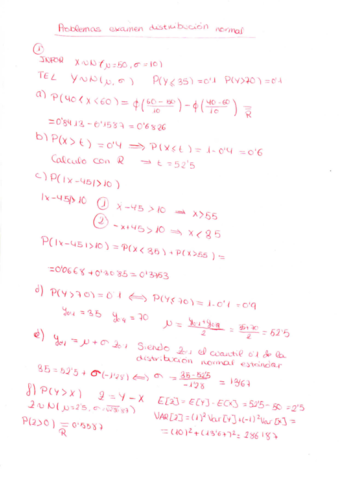 Problemas examen distribución normal
①
INFOR X~N(μ=50, σ=10)
TEL Y~N(μ, σ) P(Y≤35)=0'1 P(Y>70)=0'1
a) P(40<X<60)=ϕ(60-50/10)-ϕ(40-50/10) =R
=0'8413-0'1587=0'6826
b) P(X>t)=0'4 ⟹ P(X≤t)=1-0'4=0'6
Calculo con R ⟹ t=52'5
c) P(|X-45|>10)
|X-45|>10 ① X-45>10 ⟹ X>55
② -X+45>10 ⟹ X<35
P(|X-45|>10)=P(X<35)+P(X>55)=
=0'0668+0'3085=0'3753
d) P(Y>70)=0'1 ⟺ P(Y≤70)=1-0'1=0'9
y0,1=35 y0,9=70 μ=y0,1+y0,9/2=35+70/2=52'5
e) y0,1=μ+σ z0,1 Siendo z0,1 el cuantil 0.1 de la
distribución normal estándar
35=52'5+σ(-1'28) ⟺ σ=35-52'5/-1'28=13'67
f) P(Y>X) Z=Y-X E[Z]=E[Y]-E[X]=52'5-50=2'5
VAR[Z]=(1)² Var[Y]+(-1)² Var[X]=
P(Z>0)=R 0'5587 =(10)²+(13'67)²=286'87